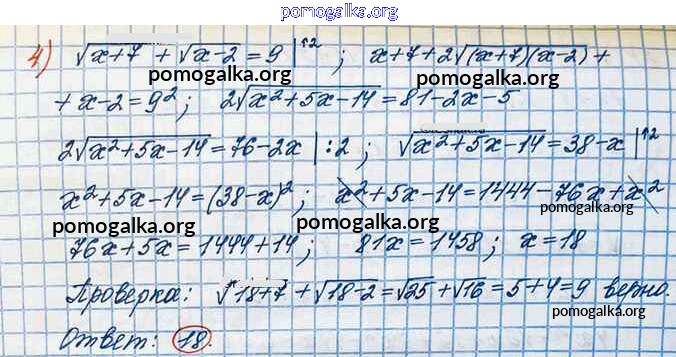 pomogalka.org
4) √(x+7) + √(x-2) = 9 |↑2 ; x+7+2√((x+7)(x-2) +
pomogalka.org pomogalka.org
+ x-2 = 9²; 2√(x²+5x-14) = 81-2x-5
2√(x²+5x-14) = 76-2x |:2 ; √(x²+5x-14) = 38-x |↑2
pomogalka.org
x²+5x-14 = (38-x)²; x²+5x-14 = 1444-76x+x²
pomogalka.org pomogalka.org pomogalka.org
76x+5x = 1444+14; 81x = 1458; x = 18
Проверка: √(18+7) + √(18-2) = √25 + √16 = 5+4 = 9 верно.
pomogalka.org
Ответ: 18.
pomogalka.org